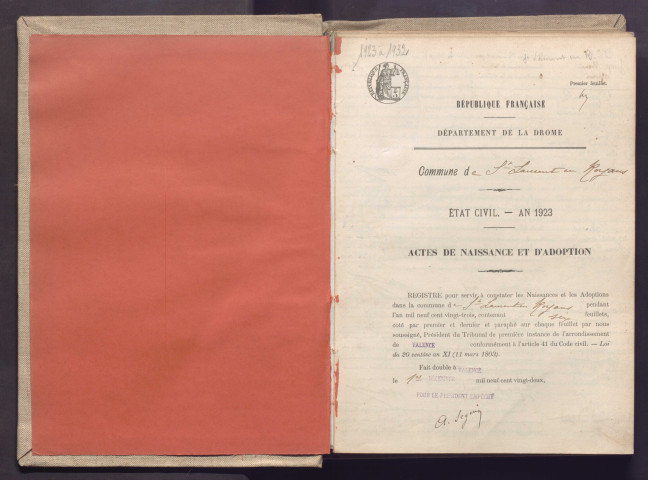 1923 à 1932
Premier feuillet.
RÉPUBLIQUE FRANÇAISE
DÉPARTEMENT DE LA DROME
Commune de St Laurent en Royans
ÉTAT CIVIL. — AN 1923
ACTES DE NAISSANCE ET D'ADOPTION
REGISTRE pour servir à constater les Naissances et les Adoptions
dans la commune de St Laurent en Royans pendant
l'an mil neuf cent vingt-trois, contenant six feuillets,
coté par premier et dernier et paraphé sur chaque feuillet par nous
soussigné, Président du Tribunal de première instance de l'arrondissement
de VALENCE conformément à l'article 41 du Code civil. — Loi
du 20 ventôse an XI (11 mars 1803).
Fait double à VALENCE
le mil neuf cent vingt-deux,
POUR LE PRESIDENT EMPECHÉ